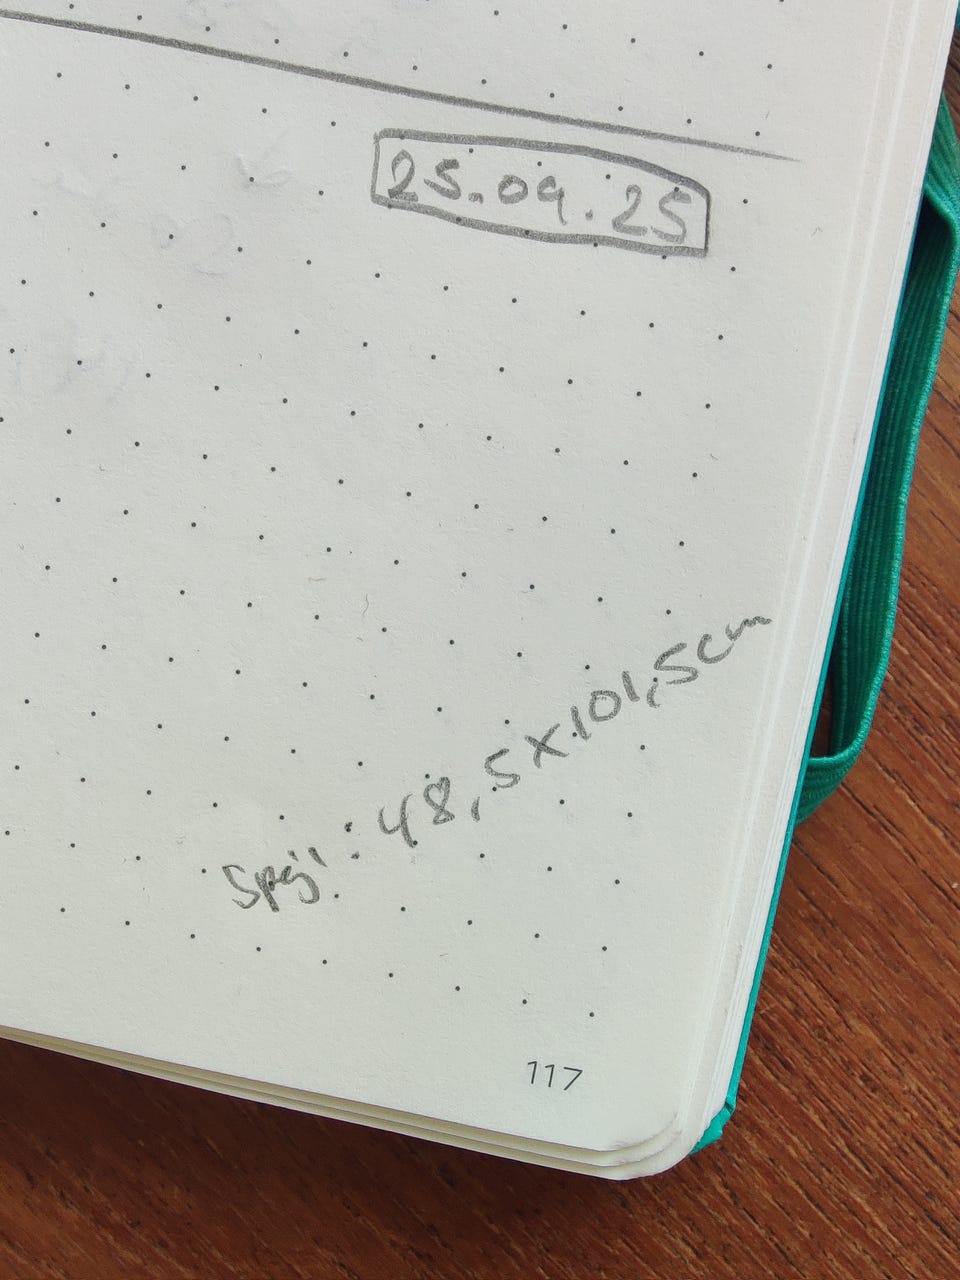 25.09.25
Spejl: 48,5x101,5cm
117